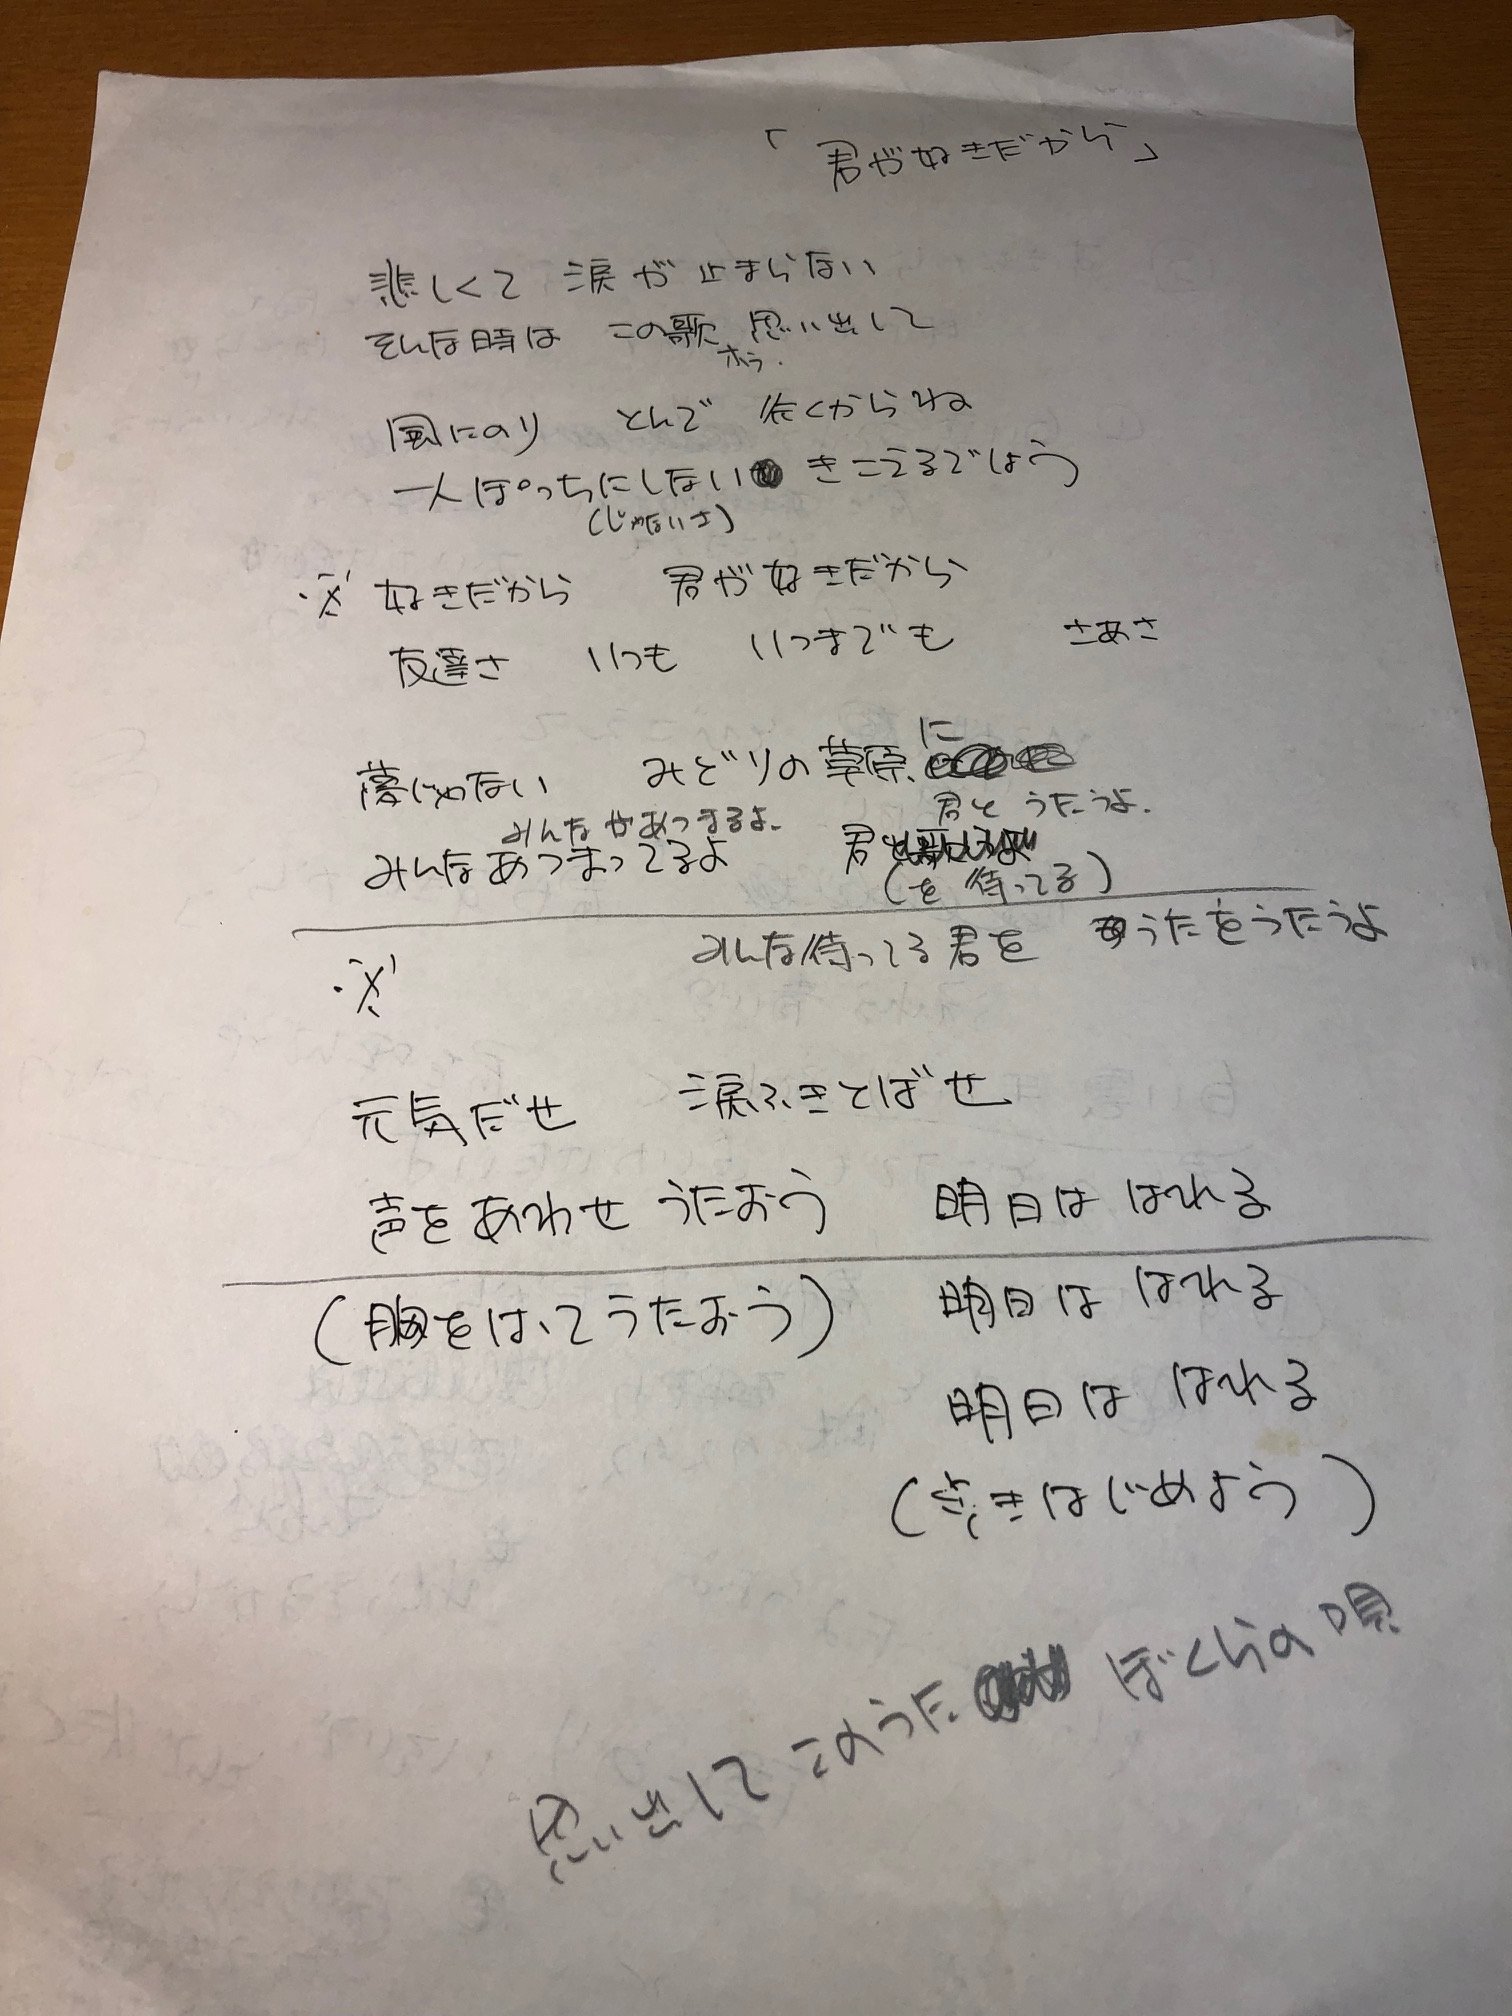 「君が好きだから」
悲しくて 涙が止まらない
そんな時は この歌 思い出して
ホラ.
風にのり とんで 行くからね
一人ぽっちにしない きこえるでしょう
(じゃないさ)
※ 好きだから 君が好きだから
友達さ いつも いつまでも さあさ
夢じゃない みどりの草原に
みんながあつまるよ. 君とうたうよ.
みんなあつまってるよ 君
(を待ってる)
みんな待ってる君を うたをうたうよ
※
元気だせ 涙ふきとばせ
声をあわせ うたおう 明日は はれる
(胸をはってうたおう) 明日は はれる
明日は はれる
(歩きはじめよう)
思い出して このうた ぼくらの唄